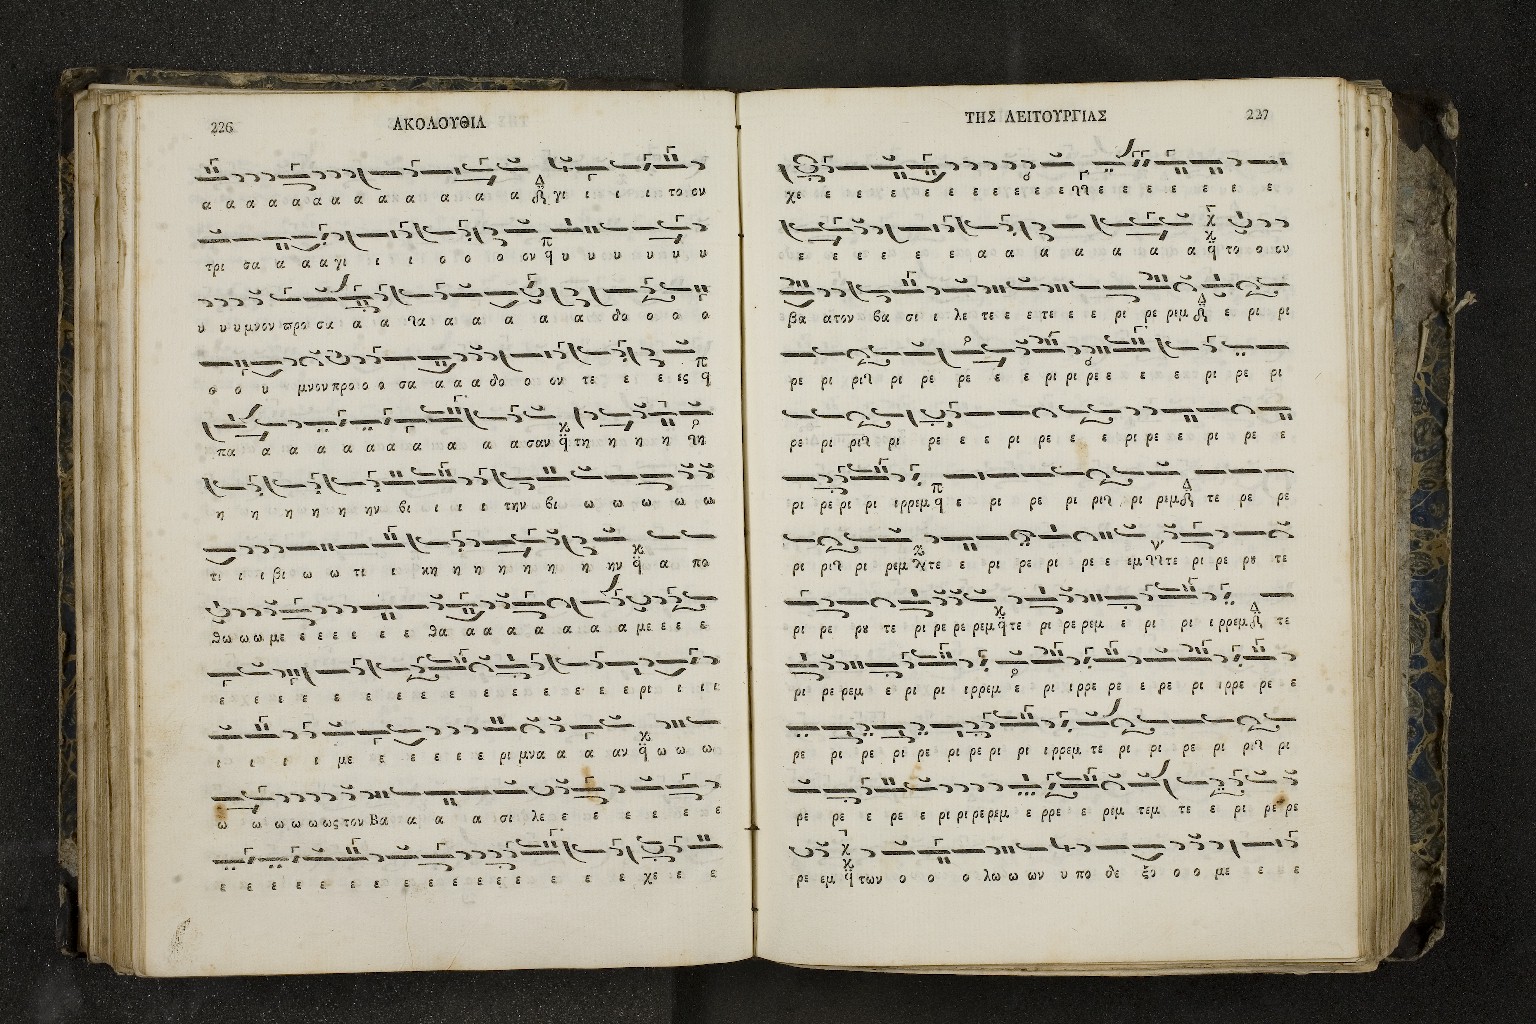 226
ΑΚΟΛΟΥΘΙΑ
α α α α α α α α α α α α α α γι ι ι ι το ον
τρι σα α α α γι ι ι ο ο ο ον υ υ υ υ υ υ
υ υ υ μνον προ σα α α α α α α α α δο ο ο ο
ο ο υ μνον προ ο ο σα α α α δο ο ον τε ε ε ες
πα α α α α α α α α α α σαν τη η η η η
η η η η η ην βι ι ι ι την βι ω ω ω ω ω
τι ι ι βι ω ω τι ι κη η η η η η η ην α πο
θω ω ω με ε ε ε ε ε ε θα α α α α α α α με ε ε ε
ε ε ε ε ε ε ε ε ε ε ε ε ε ε ρι ι ι ι
ι ι ι ι με ε ε ε ε ε ε ρι μνα α α α αν ω ω ω
ω ω ω ω ω ως τον Βα α α α σι λε ε ε ε ε ε ε
ε ε ε ε ε ε ε ε ε ε ε ε ε ε ε χε ε ε ε
ΤΗΣ ΛΕΙΤΟΥΡΓΙΑΣ
227
χε ε ε ε ε ε ε ε ε ε ε ε ε ε ε ε ε ε ε ε
ε ε ε ε ε ε α α α α α α α το ο ον
βα α τον βα σι ι λε τε ε ε τε ε ε ρι ρε ρεμ ε ρι ρι
ρε ρι ρι ρι ρε ρε ε ε ρι ρι ρε ε ε ε ε ρι ρε ρι
ρε ρι ρι ρι ρε ε ε ρι ρε ε ε ρι ρε ε ρι ρε ε
ρι ρε ρι ρι ιρρεμ ε ρι ρε ρι ρι ρι ρεμ τε ρε ρε
ρι ρι ρι ρεμ τε ε ρι ρε ρι ρε ε εμ τε ρι ρε ρου τε
ρι ρε ρου τε ρι ρε ρε ρεμ τε ρι ρε ρεμ ε ρι ρι ιρρεμ τε
ρι ρε ρεμ ε ρι ρι ιρρεμ ε ρι ιρρε ρε ε ρε ρι ιρρε ρε ε
ρε ρι ρε ρι ρε ρι ρε ρι ρι ιρρεμ τε ρι ρι ρε ρι ρι ρι
ρε ρε ε ρε ε ρι ρι ρε ρεμ ε ρρε ε ρεμ τεμ τε ε ρι ρε ρε
ρε εμ των ο ο ο λω ω ων υ πο δε ξο ο ο με ε ε